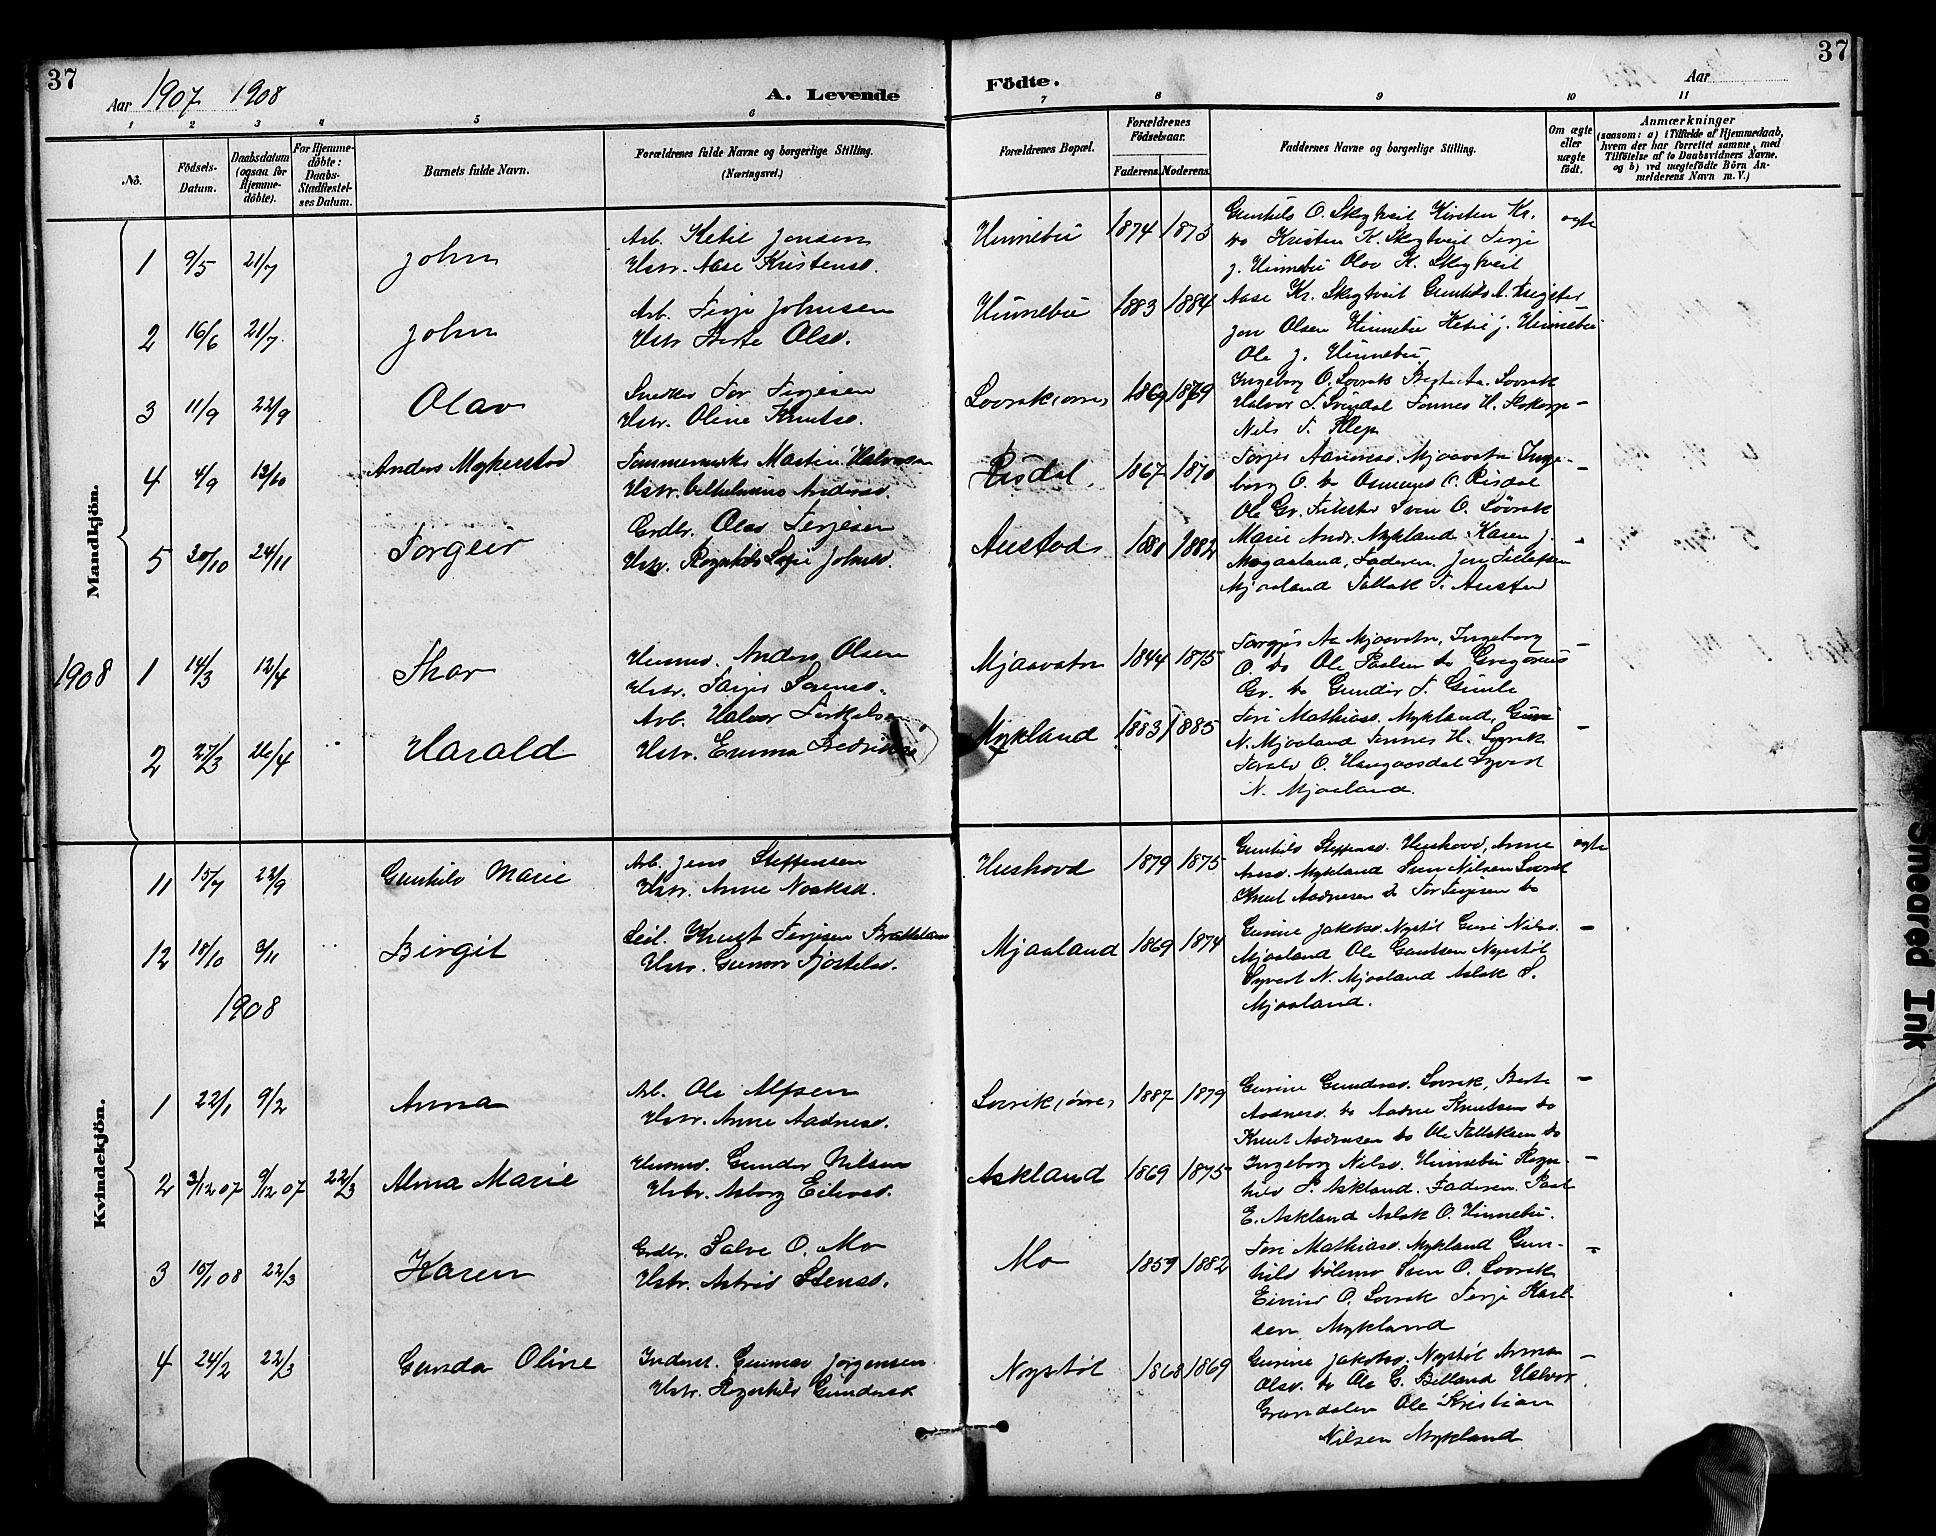 37
37
Aar 1907 1908
A. Levende
Födte.
Aar
1 2 3 4 5 6 7 8 9 10 11
No.
Födsels-
Datum.
Daabsdatum
(ogsaa for
Hjemme-
döbte).
For Hjemme-
döbte:
Daabs-
Stadfæstel-
ses Datum.
Barnets fulde Navn.
Forældrenes fulde Navne og borgerlige Stilling.
(Næringsvei.)
Forældrenes Bopæl.
Forældrenes
Födselsaar.
Faderens. Moderens.
Faddernes Navne og borgerlige Stilling.
Om ægte
eller
uægte
født.
Anmærkninger
(saasom: a) i Tilfælde af Hjemmedaab,
hvem der har forrettet samme, med
Tilföielse af to Daabsvidners Navne.
og b) ved uegtefödte Börn An-
melderens Navn m. V.)
Mandkjön.
1 9/5 21/7 John
Arb. Ketil Jonsen
Hstr. Aase Kristensd.
Hinnebu 1874 1873
Gunhild O. Skogtveit Kirsten Kr.
do Kristen K. Skogtveit Terje
J. Hinnebu Olav K. Skogtveit
ægte
2 16/6 21/7 John
Arb. Terje Johnsen
Hstr Berte Olsd.
Hinnebu 1883 1884
Aase Kr. Skogtveit Gunhild A.
Jon Olsen Hinnebu Ketil J. Hinnebu
Ole J. Hinnebu
3 11/9 22/9 Olav
Snedker Tor Terjesen
Hstr. Oline Knutsd.
1869 1879
Ingeborg O.
Halvor T. Svendal Tønnes H.
Nils T. Klep
4 4/9 13/10 Anders Mykerstod
Martin Halvorsen
Hstr. Vilhelmine Andersd.
Risdal. 1867 1870
Aanonsd. Mjaavatn Inge-
borg O. do Osmund O. Risdal
Ole Gr. Sven O. Løvrak
5 30/10 24/11 Torgeir
Grdbr. Olav Terjesen
Hstr. Ragnhild Sofie Johnsd.
Austad 1880 1882
Marie Andr. Mykland Karen J.
Faderen. Jon Tellefsen
Mjaaland Tallak T. Austad
1908
1 14/3 12/4 Thor
Husmd. Anders Olsen
Hstr. Sørensd.
Mjaavatn 1844 1875
Aa Mjaavatn, Ingeborg
O. do Ole Paalsen do Gregorius
Gr. do Gunder T. Gimle
2 27/3 26/4 Harald
Arb. Halvor Torkelsen
Hstr. Emma
Mykland 1883 1885
Tori Mathiasd. Mykland, Guri
N. Mjaaland Tønnes H. Løvrak
Torals O. Haugaasdal Syvert
N. Mjaaland.
Kvindekjön.
11 15/7 22/9 Gunhild Marie
Arb. Jens Steffensen
Hstr. Anne Noaksd.
Hushovd 1879 1875
Gunhild Steffensd. Hushovd, Anne
Mykland Sven Nilsen Løvrak
Knut Aadnesen do Tor Terjesen do
ægte
12 18/10 3/11 Birgit
Knut Terjesen
Hstr. Gunvor
Mjaaland 1869 1874
Gurine Jakobsd. Nystøl Guri Nilsd.
Mjaaland Ole Nystøl
Syvert N. Mjaaland Aslak S.
Mjaaland.
1908
1 22/1 9/2 Anna
Arb. Ole Alfsen
Hstr. Anne Aadnesd.
1887 1879
Gurine Gundersd. Løvrak, Berte
Aadnesd. do Aadne Knutsen do
Knut Aadnesen do Ole Tallaksen do
2 3/12 07 9/12 07 22/3 Alma Marie
Husmd. Gunder Nilsen
Hstr. Asborg Eilevsd.
Askland 1869 1875
Ingeborg Nilsd. Hinnebu Ragn-
hild P. Askland. Faderen. Paal
E. Askland Aslak O. Hinnebu.
3 15/1 08 22/3 Karen
Grdbr. Salve O. Mo
Hstr. Astrid Stensd.
Mo 1859 1882
Tori Mathiasd. Mykland Gun-
hild Sven O. Løvrak
Eivind O. Løvrak Terje Karl-
sen Mykland
4 24/2 22/3 Gunda Oline
Inderst. Gunnar Jørgensen
Hstr. Ragnhild Gundersd
Nystøl 1868 1869
Gurine Jakobsd. Nystøl Anna
Olsd. do Ole G. Belland Halvor
Grøndalen Ole Kristian
Nilsen Mykland
Smeared Ink